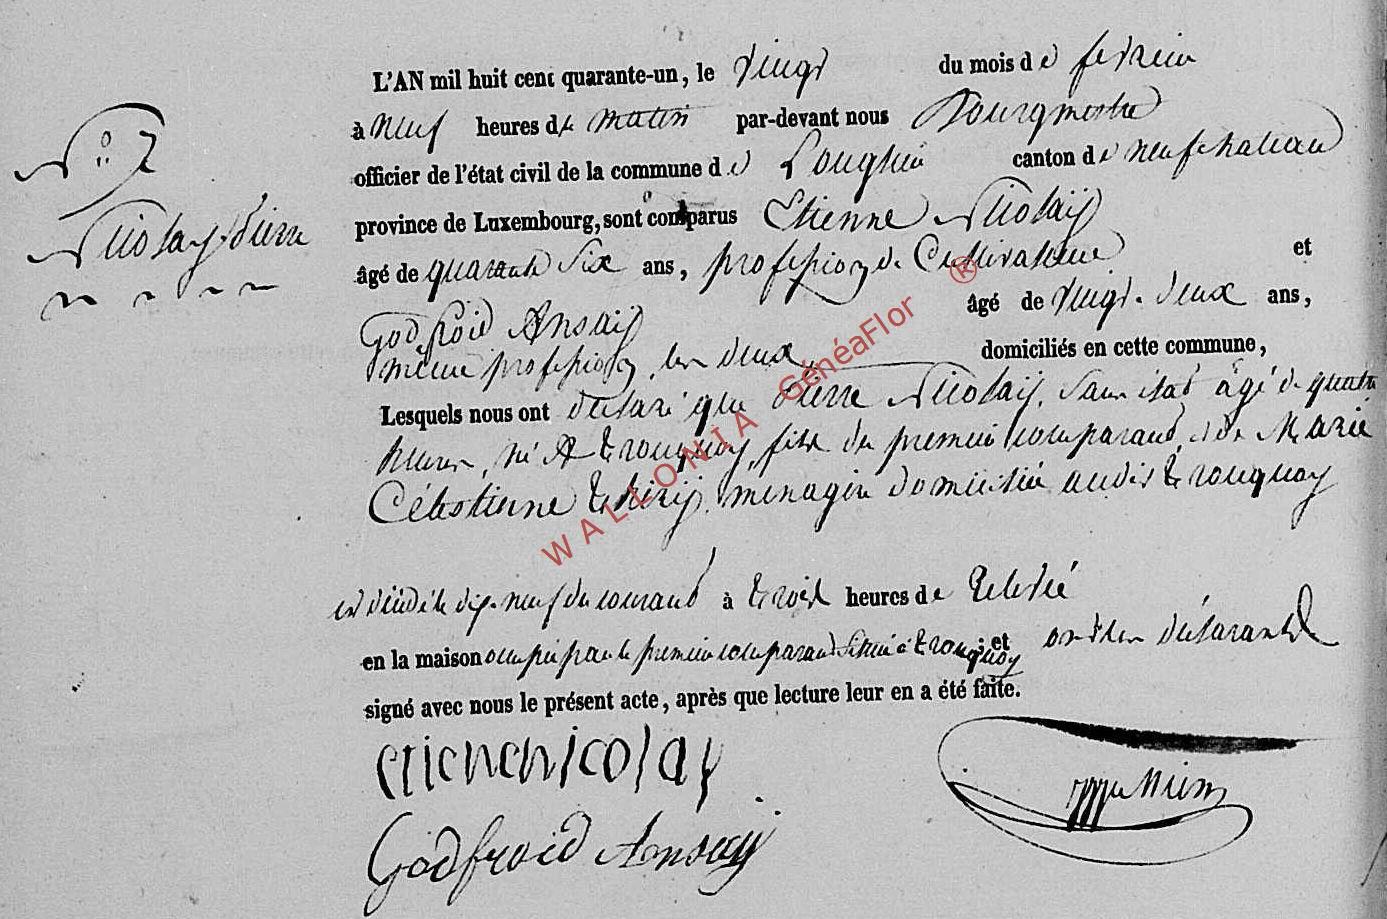 N° 7
Nicolay Pierre
L'AN mil huit cent quarante-un, le vingt du mois de fevrier
à neuf heures de matin par-devant nous Bourgmestre
officier de l'état civil de la commune de Longlier canton de neufchateau
province de Luxembourg, sont comparus Etienne Nicolaÿ
âgé de quarante Six ans, profession de Cultivateur et
Godfroid Ansaiÿ âgé de vingt-deux ans,
même profession, les deux domiciliés en cette commune,
Lesquels nous ont déclaré que Pierre Nicolaÿ, Sans état âgé de quatre
heures, né à tronquoy, fils du premier comparant, et de Marie
Célestienne thiriÿ, menagère domiciliée audit tronquoy
est décédé le dix-neuf du courant à trois heures de relevée
en la maison occupée par le premier comparant située à tronquoy et ont les déclarants
signé avec nous le présent acte, après que lecture leur en a été faite.
etienenicolay
Godfroid Ansaiÿ
WALLONIA GénéaFlor ®